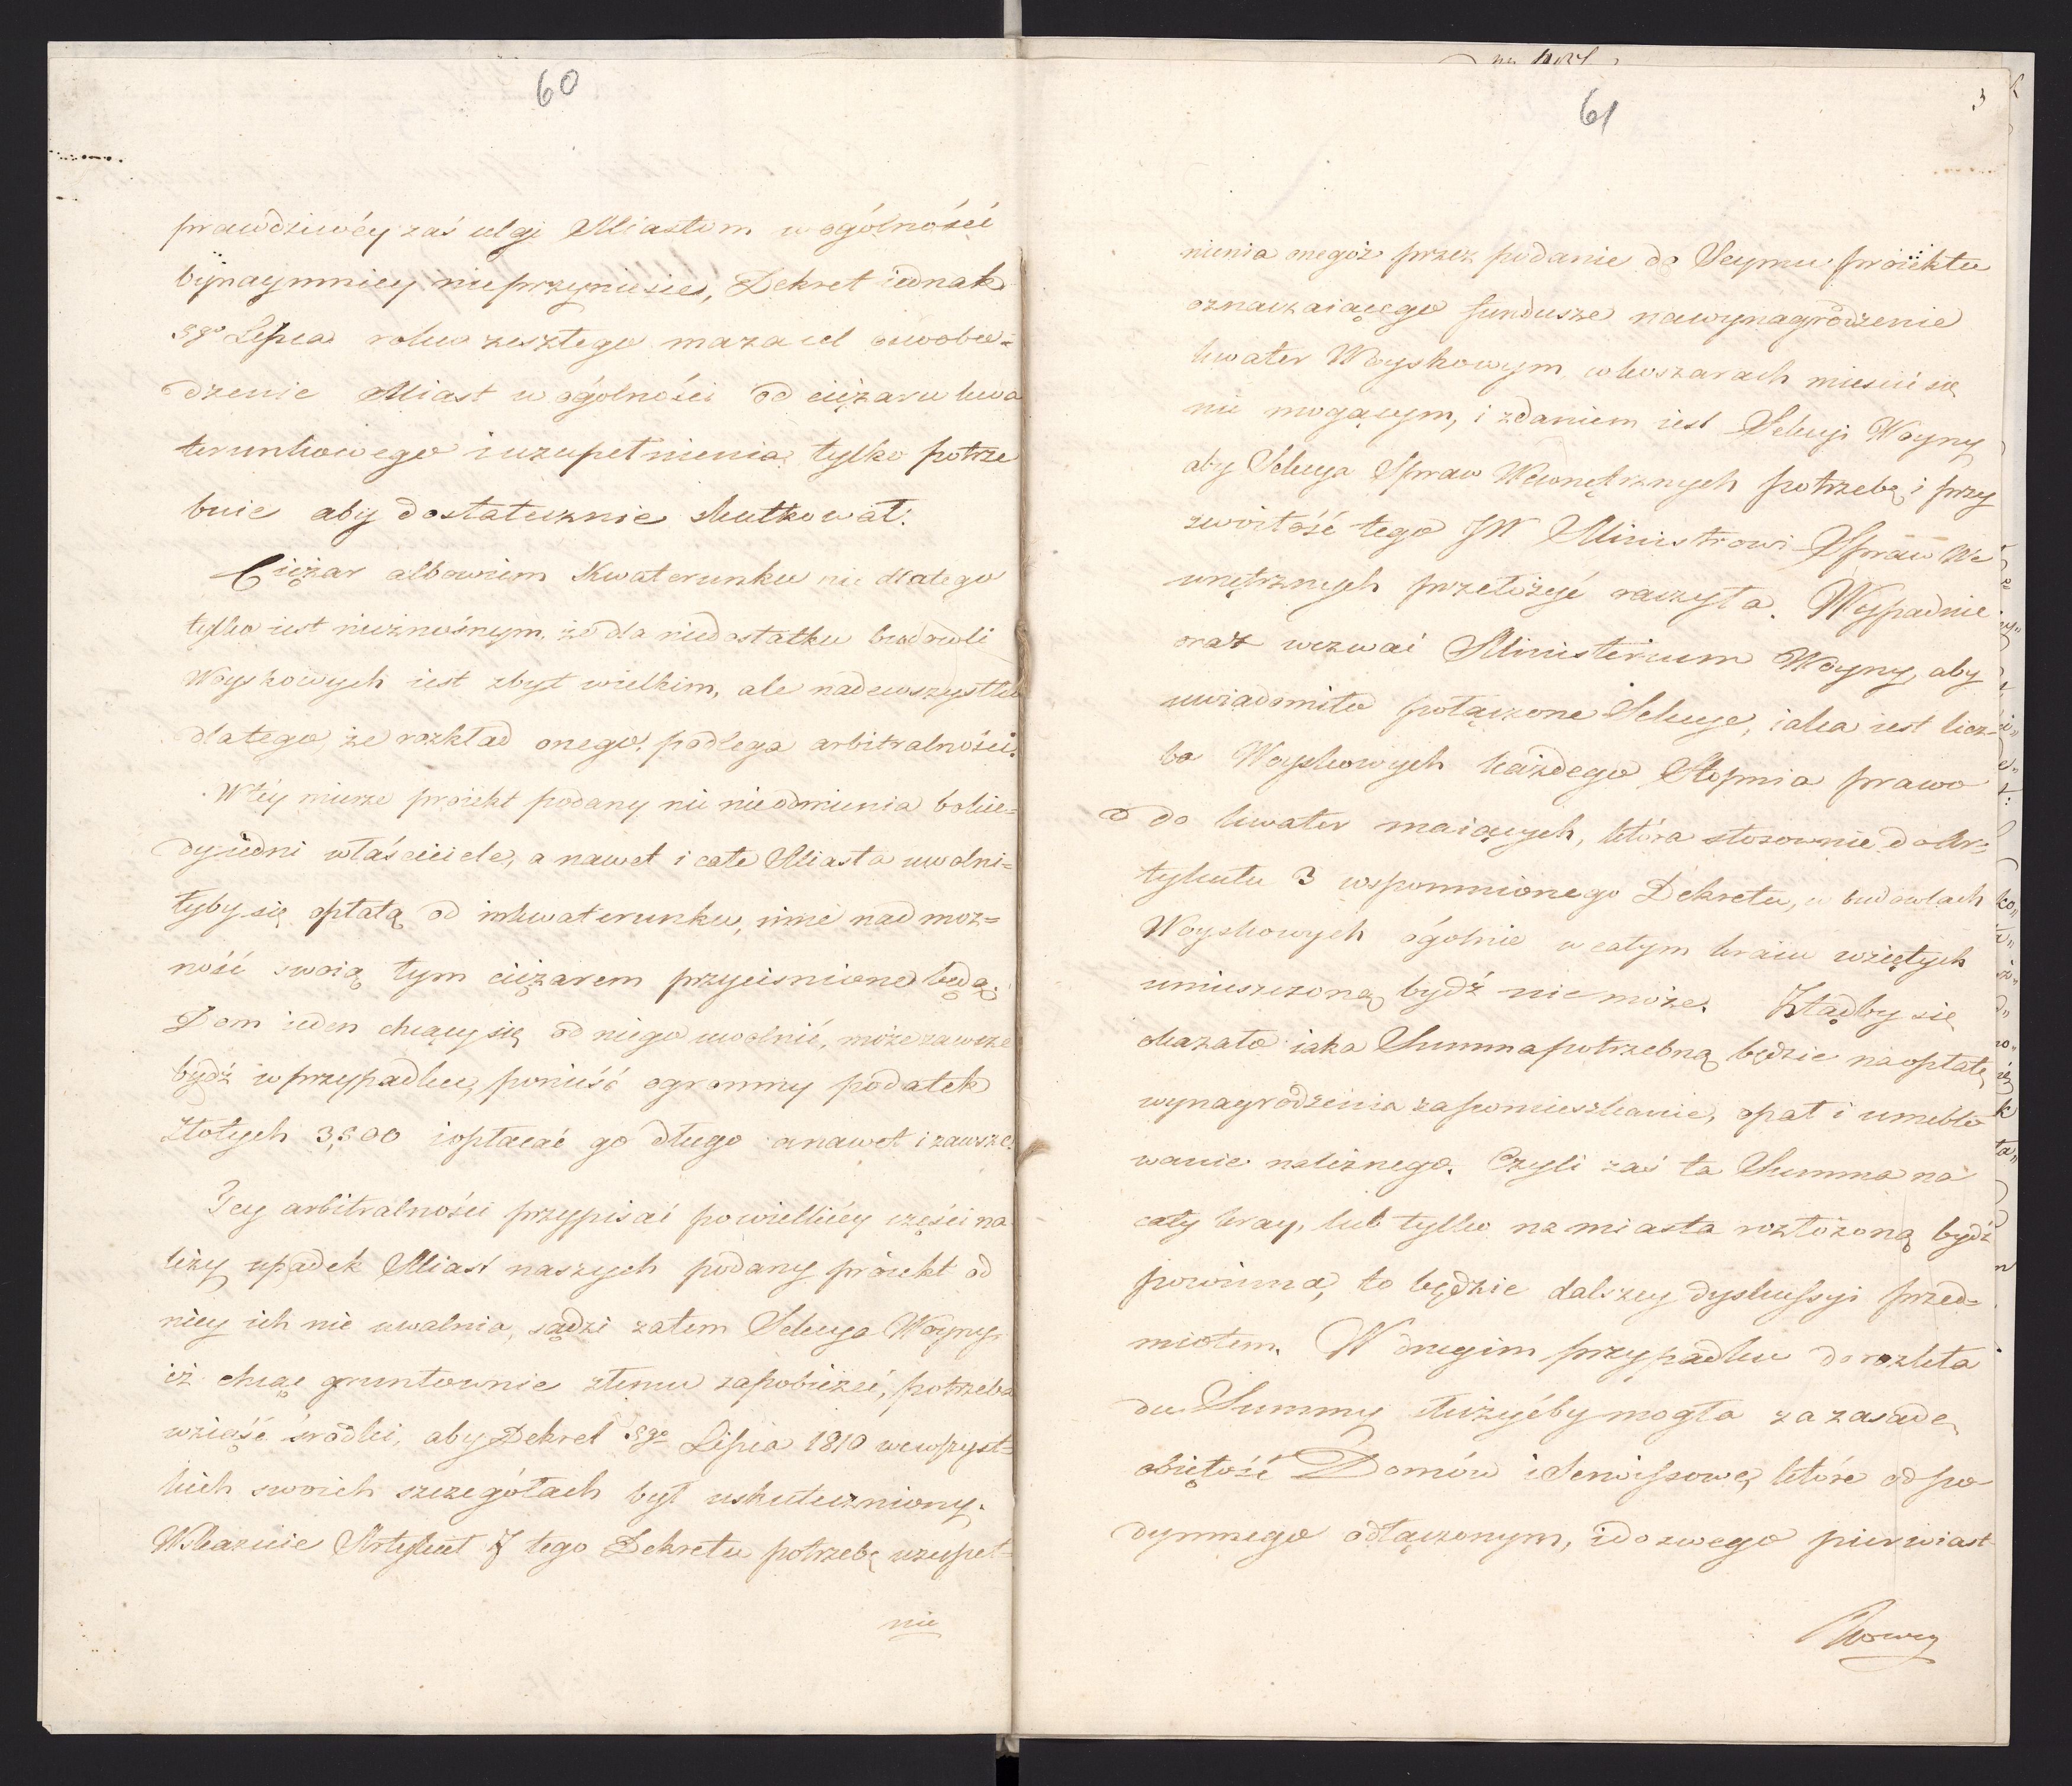 60
prawdziwéy zaś ulgi Miastom w ogólności
bÿnaymniey nieprzyniesie, Dekret iednak
39º Lipca roku zeszłego maza cel oswobo=
dzenie Miast w ogólności od ciężaru kwa
terunkowego i uzupełnienia tylko potrze
buie aby dostatecznie skutkował.
Ciężar albowiem Kwaterunku nie dlatego
tylko iest nieznośnym, że dla niedostatku budowli
Woyskowych iest zbyt wielkim, ale nadewszystko
dlatego, że rozkład onego podlega arbitralności.
W téy mierze proiekt podany nic nieodmienia bo kie=
dy iedni właściciele, a nawet i całe Miasta uwolni=
łyby się opłatą od inkwaterunku, inne nad moz=
ność swoią tym ciężarem przyciśnione będą.
Dom ieden chcący się od niego uwolnić, może zawsze
bydź w przypadku, ponieść ogromny podatek
Złotych 3,300 i opłacać go długo a nawet i zawsze.
Tey arbitralności przypisać po wielkiéy części na
leży upadek Miast naszych podany proiekt od
niey ich nie uwalnia, sądzi zatem Sekcya Woyny,
iż chcąc gruntownie złemu zapobieżeć, potrzeba
wziąść środki, aby Dekret 39º Lipca 1810 we wszyst=
kich swoich szczegółach był uskuteczniony.
Wskazuie Artykuł 7 tego Dekretu potrzebę uzupeł=
nie
61
3
nienia onegoż przez podanie do Seymu proiektu
oznaczaiącego fundusze na wynagrodzenie
kwater Woyskowym, w koszarach mieścić się
nie mogącym, i zdaniem iest Sekcyi Woyny
aby Sekcya Spraw Wewnętrznych potrzebę i przy
zwoitość tego JW Ministrowi Spraw We
wnętrznych przełożyć raczyła. Wypadnie
oraz wezwać Ministerium Woyny, aby
uwiadomiło połączone Sekcye, iaka iest licz=
ba Woyskowych każdego Stopnia prawo
do kwater maiących, która stosownie do Ar=
tykułu 3 wspomnionego Dekretu, w budowlach
Woyskowych ogólnie w całym kraiu wziętych
umieszczoną bydź nie może. Ztądby się
okazało iaka Summa potrzebną będzie na opłatę
wynagrodzenia za pomieszkanie, opał i umeblo
wanie należnego. Czyli zaś ta Summa na
cały kray, lub tylko na miasta rozłożoną bydź
powinna, to będzie dalszey dyskussyi przed=
miotem. W drugim przypadku do rozkła
du Summy służyćby mogła za zasadę
obiętość Domów i Serwissowe, które od po=
dymnego odłączonym, i do swego pierwiast
kowey